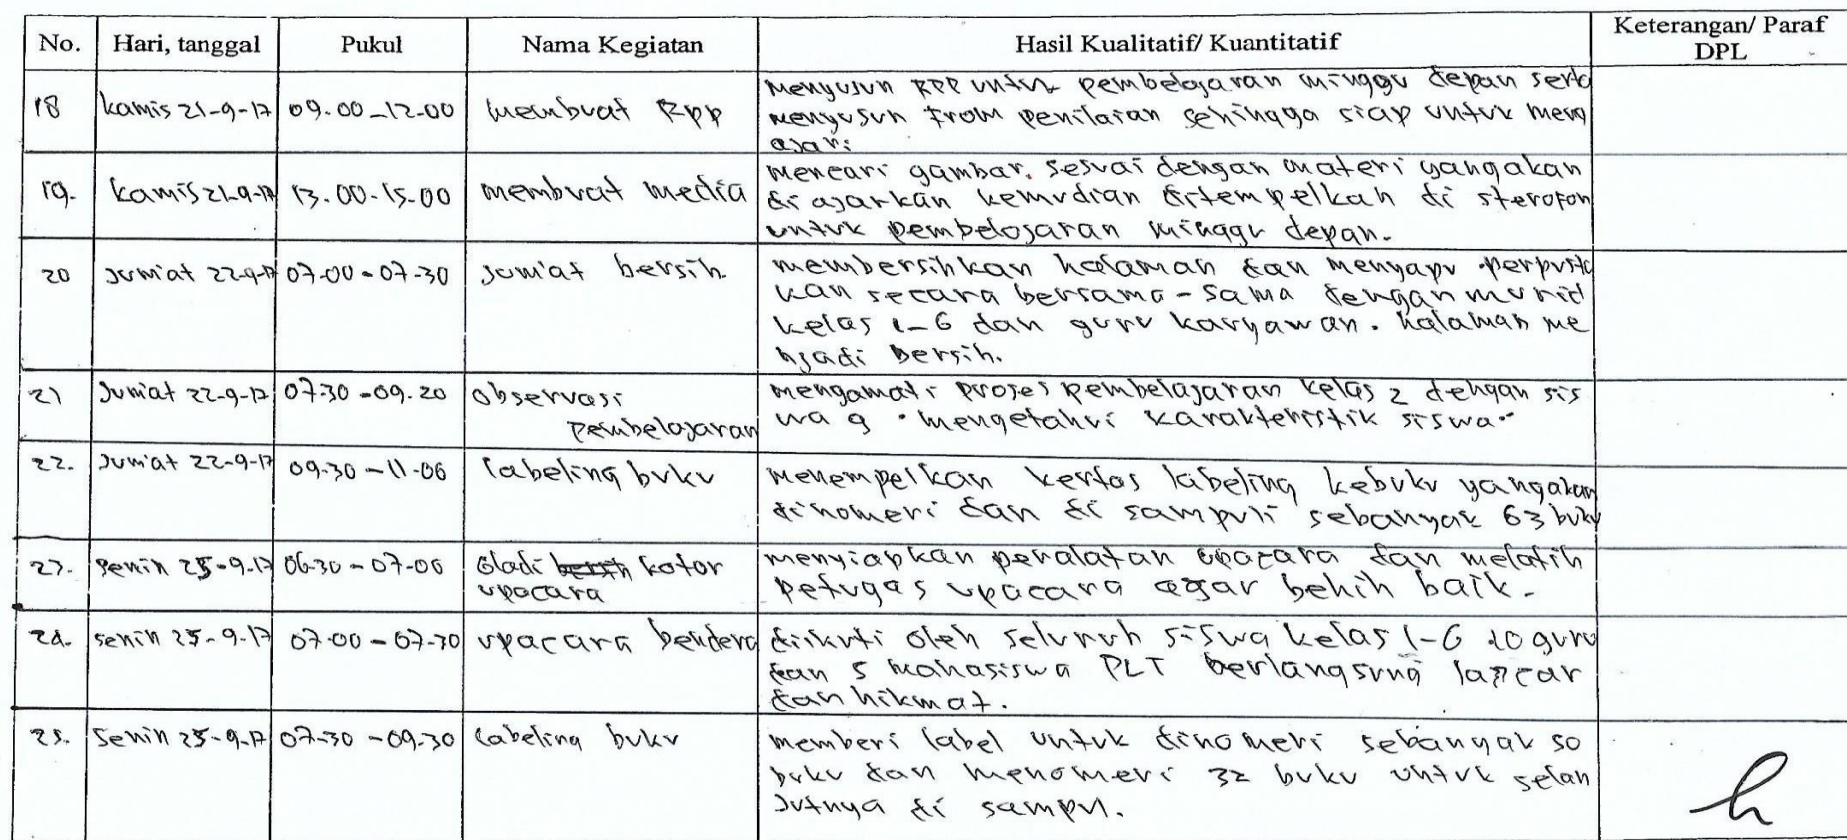 No. Hari, tanggal Pukul Nama Kegiatan Hasil Kualitatif/ Kuantitatif Keterangan/ Paraf
DPL
18 kamis 21-9-17 09.00-12-00 membuat Rpp menyusun RPP untuk pembelajaran minggu depan serta
menyusun from penilaian sehingga siap untuk meng
ajari
19. kamis 21-9-17 13.00-15.00 membuat media mencari gambar. sesuai dengan materi yangakan
di ajarkan kemudian ditempelkan di sterofon
untuk pembelajaran minggu depan.
20 Jum'at 22-9-17 07-00-07-30 Jum'at bersih membersihkan halaman dan menyapu perpusta
kaan secara bersama-sama dengan murid
kelas 1-6 dan guru karyawan. halaman me
njadi bersih.
21 Jum'at 22-9-17 07.30-09.20 observasi mengamati proses pembelajaran kelas 2 dengan sis
pembelajaran wa 9 . mengetahui karakteristik siswa.
22. Jum'at 22-9-17 09.30-11-00 labeling buku menempelkan kertas labeling kebuku yangakan
dinomeri dan di sampuli sebanyak 63 buku
23. senin 25-9-17 06-30-07-00 Gladi bersih kotor menyiapkan peralatan upacara dan melatih
upacara petugas upacara agar behih baik.
24. senin 25-9-17 07-00-07-30 upacara bendera diikuti oleh seluruh siswa kelas 1-6 10 guru
dan 5 mahasiswa PLT berlangsung lancar
dan hikmat.
25. senin 25-9-17 07-30-09.30 labeling buku memberi label untuk dinomeri sebanyak 50
buku dan menomeri 32 buku untuk selan
jutnya di sampul.